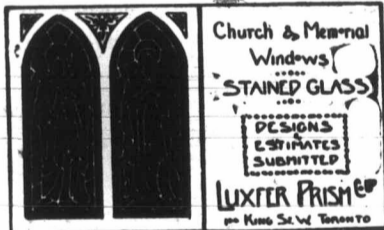 Church & Memorial
Windows
STAINED GLASS
DESIGNS
&
ESTIMATES
SUBMITTED
LUXFER PRISM Co
100 KING St. W. TORONTO